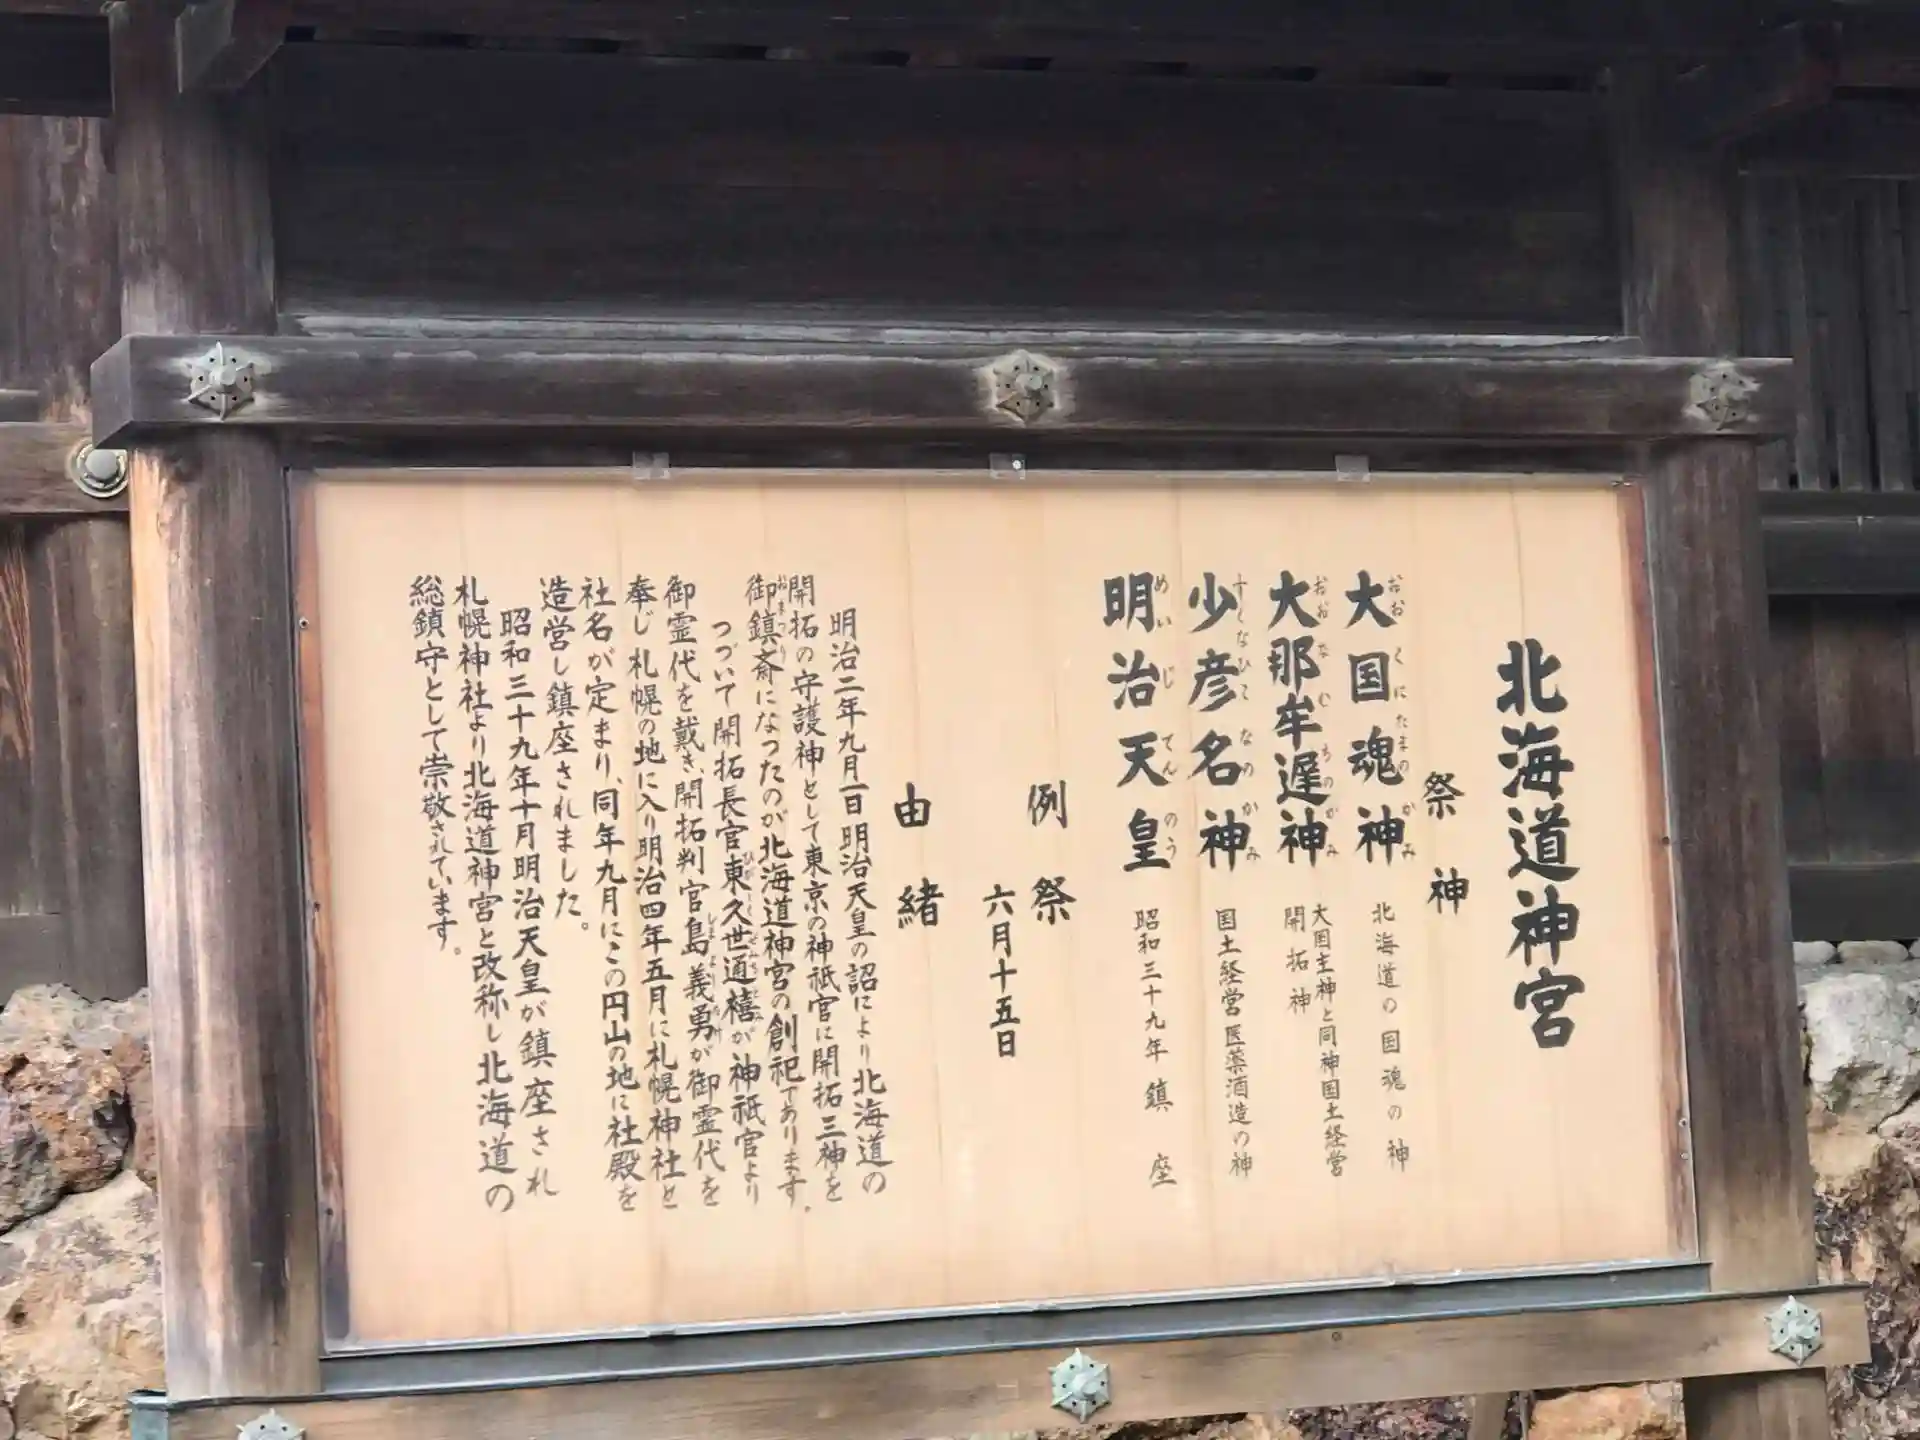 北海道神宮
祭神
大国魂神 北海道の国魂の神
おおくにたまのかみ
大那牟遅神 大国主神と同神国土経営
開拓神
おおなむちのかみ
少彦名神 国土経営医薬酒造の神
すくなひこなのかみ
明治天皇 昭和三十九年鎮座
めいじてんのう
例祭
六月十五日
由緒
明治二年九月一日明治天皇の詔により北海道の
開拓の守護神として東京の神祇官に開拓三神を
御鎮斎になったのが北海道神宮の創祀であります。
おまつり
つづいて開拓長官東久世通禧が神祇官より
ひがしくぜみちとみ
御霊代を戴き、開拓判官島義勇が御霊代を
しまよしたけ
奉じ札幌の地に入り明治四年五月に札幌神社と
社名が定まり、同年九月にこの円山の地に社殿を
造営し鎮座されました。
昭和三十九年十月明治天皇が鎮座され
札幌神社より北海道神宮と改称し北海道の
総鎮守として崇敬されています。